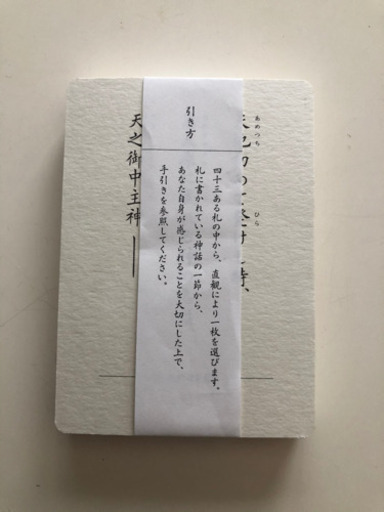 あめつち ひら
時、
引き方
四十三ある札の中から、直観により一枚を選びます。
札に書かれている神話の一節から、
あなた自身が感じられることを大切にした上で、
手引きを参照してください。
天之御中主神